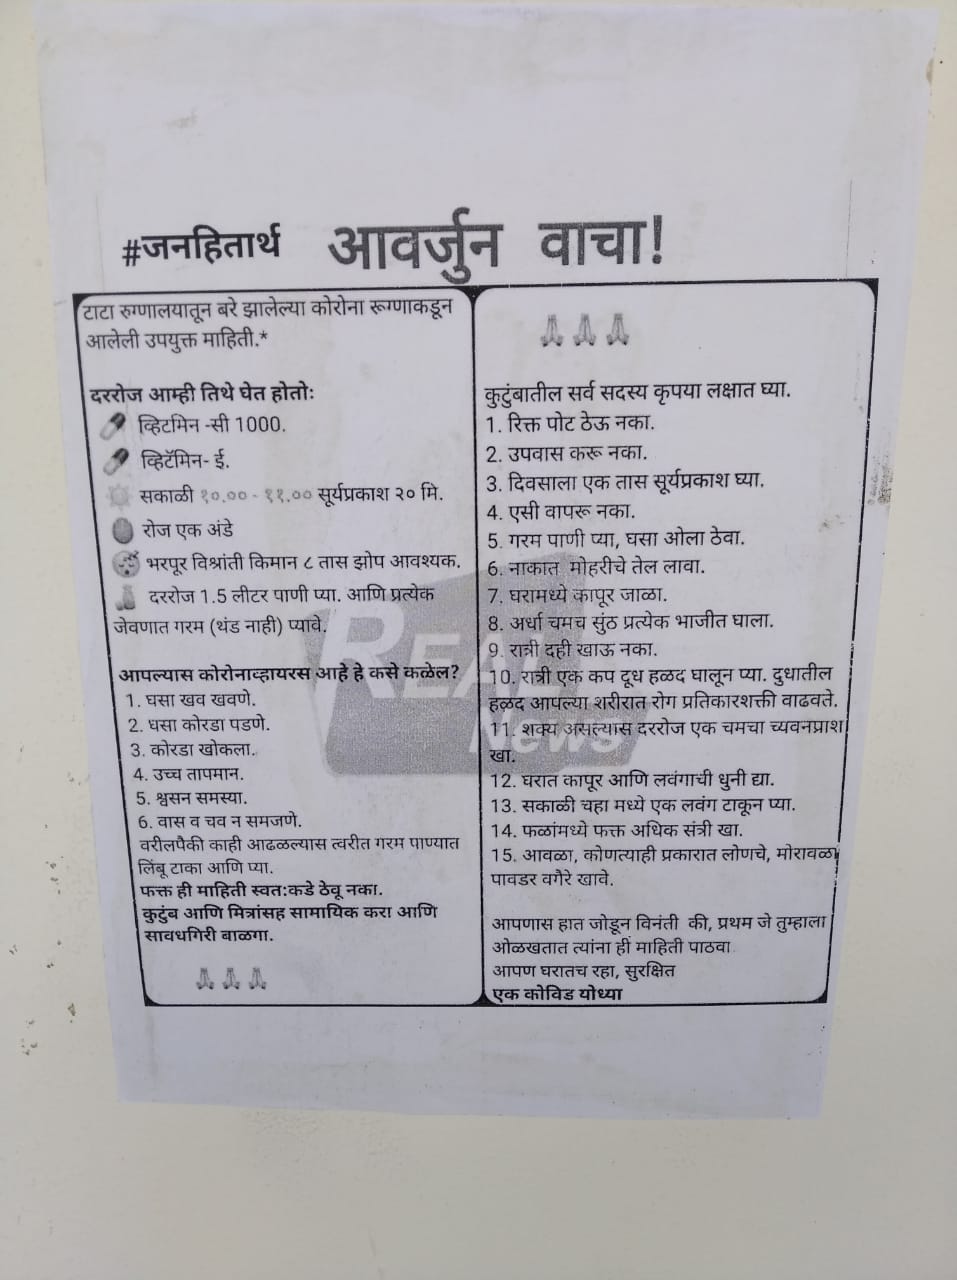 #जनहितार्थ आवर्जुन वाचा!
टाटा रुग्णालयातून बरे झालेल्या कोरोना रूग्णाकडून
आलेली उपयुक्त माहिती.*
दररोज आम्ही तिथे घेत होतोः
व्हिटमिन -सी 1000.
व्हिटॅमिन- ई.
सकाळी १०.०० - ११.०० सूर्यप्रकाश २० मि.
रोज एक अंडे
भरपूर विश्रांती किमान ८ तास झोप आवश्यक.
दररोज 1.5 लीटर पाणी प्या. आणि प्रत्येक
जेवणात गरम (थंड नाही) प्यावे.
आपल्यास कोरोनाव्हायरस आहे हे कसे कळेल?
1. घसा खव खवणे.
2. घसा कोरडा पडणे.
3. कोरडा खोकला.
4. उच्च तापमान.
5. श्वसन समस्या.
6. वास व चव न समजणे.
वरीलपैकी काही आढळल्यास त्वरीत गरम पाण्यात
लिंबू टाका आणि प्या.
फक्त ही माहिती स्वतःकडे ठेवू नका.
कुटुंब आणि मित्रांसह सामायिक करा आणि
सावधगिरी बाळगा.
कुटुंबातील सर्व सदस्य कृपया लक्षात घ्या.
1. रिक्त पोट ठेऊ नका.
2. उपवास करू नका.
3. दिवसाला एक तास सूर्यप्रकाश घ्या.
4. एसी वापरू नका.
5. गरम पाणी प्या, घसा ओला ठेवा.
6. नाकात मोहरीचे तेल लावा.
7. घरामध्ये कापूर जाळा.
8. अर्धा चमच सुंठ प्रत्येक भाजीत घाला.
9. रात्री दही खाऊ नका.
10. रात्री एक कप दूध हळद घालून प्या. दुधातील
हळद आपल्या शरीरात रोग प्रतिकारशक्ती वाढवते.
11. शक्य असल्यास दररोज एक चमचा च्यवनप्राश
खा.
12. घरात कापूर आणि लवंगाची धुनी द्या.
13. सकाळी चहा मध्ये एक लवंग टाकून प्या.
14. फळांमध्ये फक्त अधिक संत्री खा.
15. आवळा, कोणत्याही प्रकारात लोणचे, मोरावळा
पावडर वगैरे खावे.
आपणास हात जोडून विनंती की, प्रथम जे तुम्हाला
ओळखतात त्यांना ही माहिती पाठवा
आपण घरातच रहा, सुरक्षित
एक कोविड योध्या
REAL
News